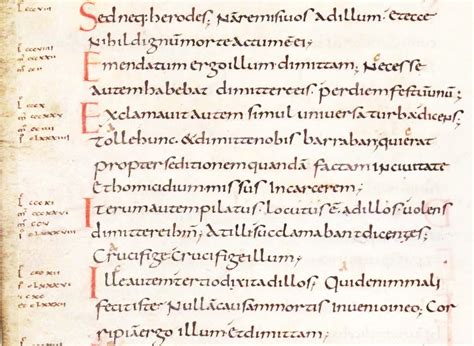 Sed neq; herodes; Nā remisi uos ad illum. Et ecce
Nihil dignum morte actum ē ei;
Emendatum ergo illum dimittam; Necesse
autem habebat dimittere eis. per diem festū unū;
Exclamauit autem simul uniuersa turba dicens;
tolle hunc. & dimitte nobis barraban. qui erat
propter seditionem quandā factam in ciuitate
& homicidium missus in carcerem;
Iterum autem pilatus locutus ē ad illos. uolens
dimittere ihm. At illi succlamabant dicentes;
Crucifige Crucifige illum.
Ille autem tertio dixit ad illos; Quid enim mali
fecit iste; Nullā causam mortis inuenio in eo; Cor
ripiā ergo illum et dimittam;